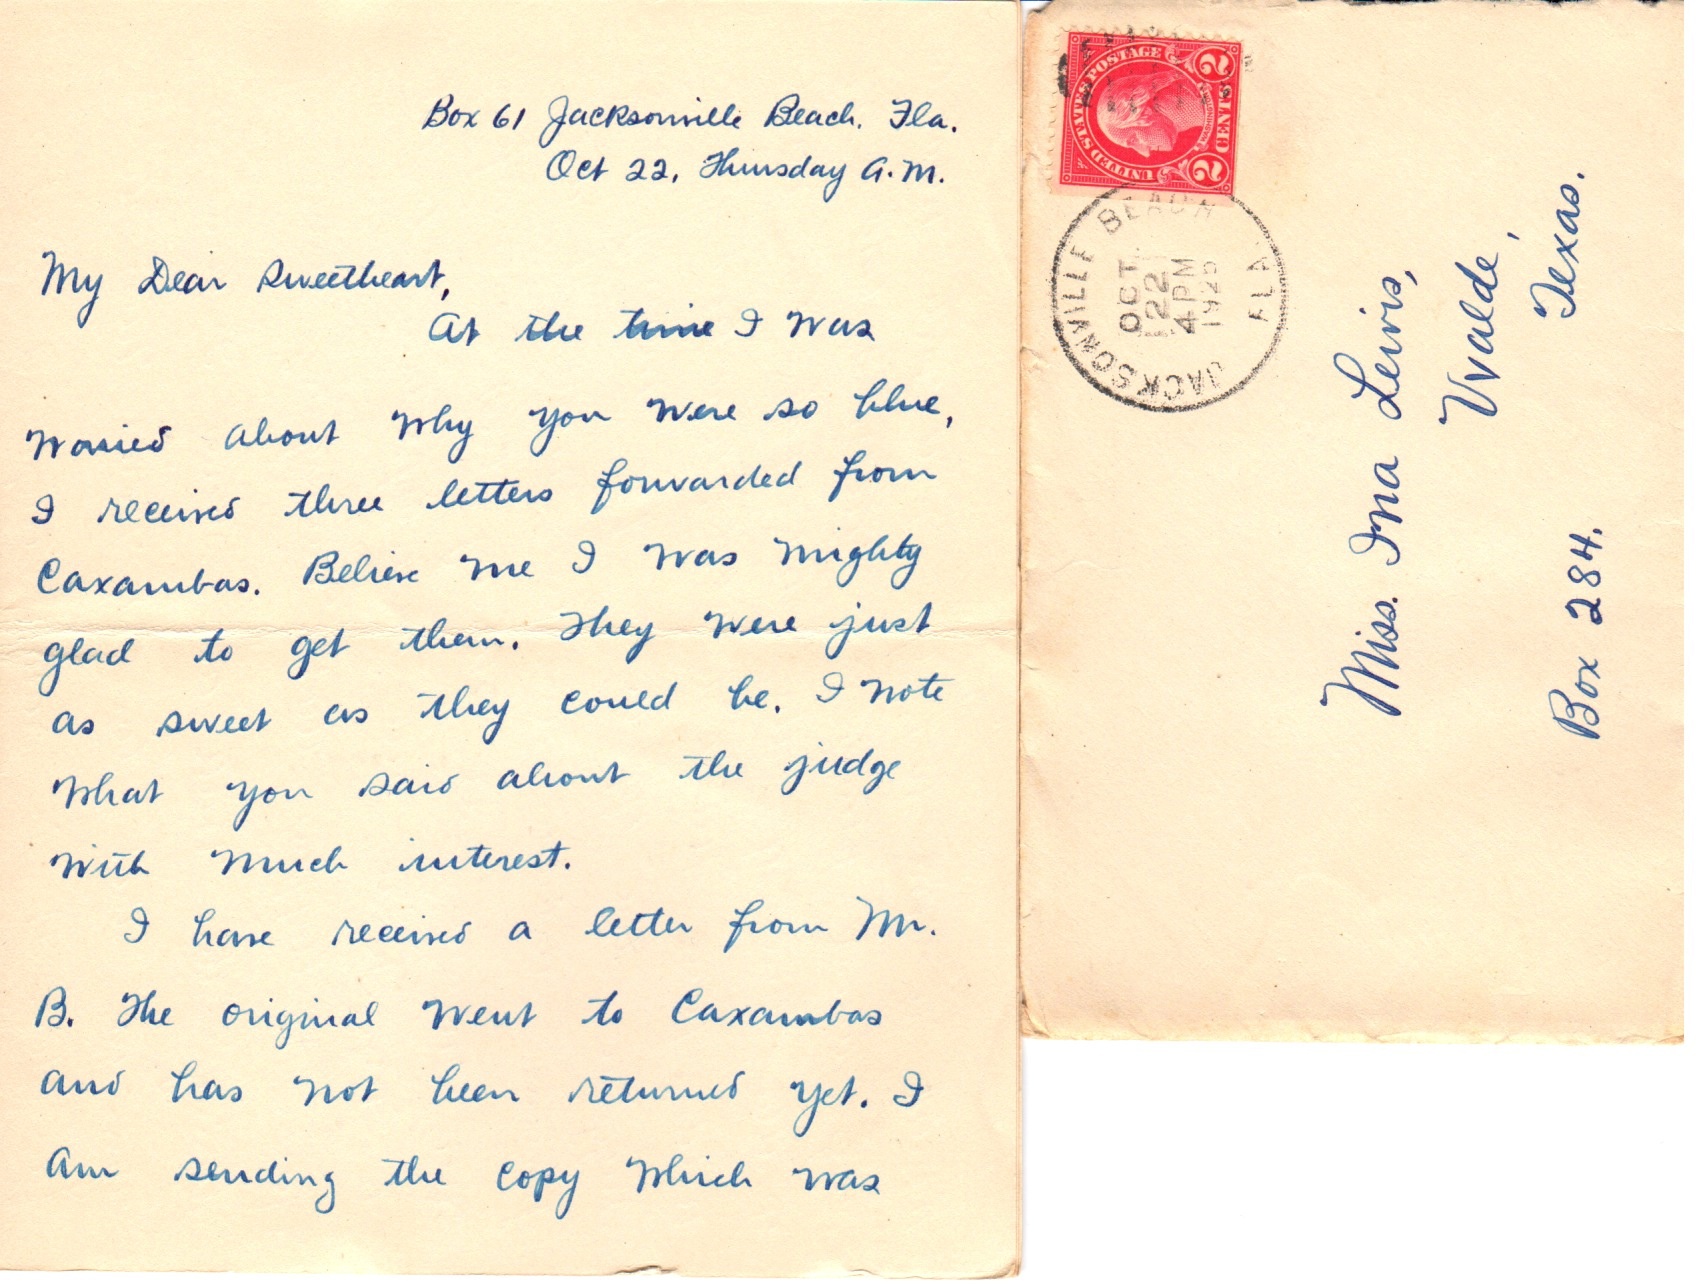 Box 61 Jacksonville Beach. Fla.
Oct 22, Thursday A.M.
My Dear Sweetheart,
At the time I was
worried about why you were so blue,
I received three letters forwarded from
Caxambas. Believe me I was mighty
glad to get them. They were just
as sweet as they could be. I note
what you said about the judge
with much interest.
I have received a letter from Mr.
B. The original went to Caxambas
and has not been returned yet. I
am sending the copy which was
UNITED STATES POSTAGE
WASHINGTON
2 CENTS 2
JACKSONVILLE BEACH
FLA.
OCT
22
4 PM
1925
Miss. Ina Lewis,
Uvalde,
Box 284. Texas.